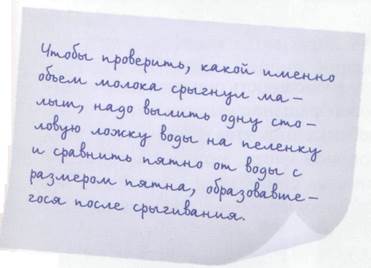 Чтобы проверить, какой именно
объем молока срыгнул ма-
лыш, надо вылить одну сто-
ловую ложку воды на пеленку
и сравнить пятно от воды с
размером пятна, образовавше-
гося после срыгивания.